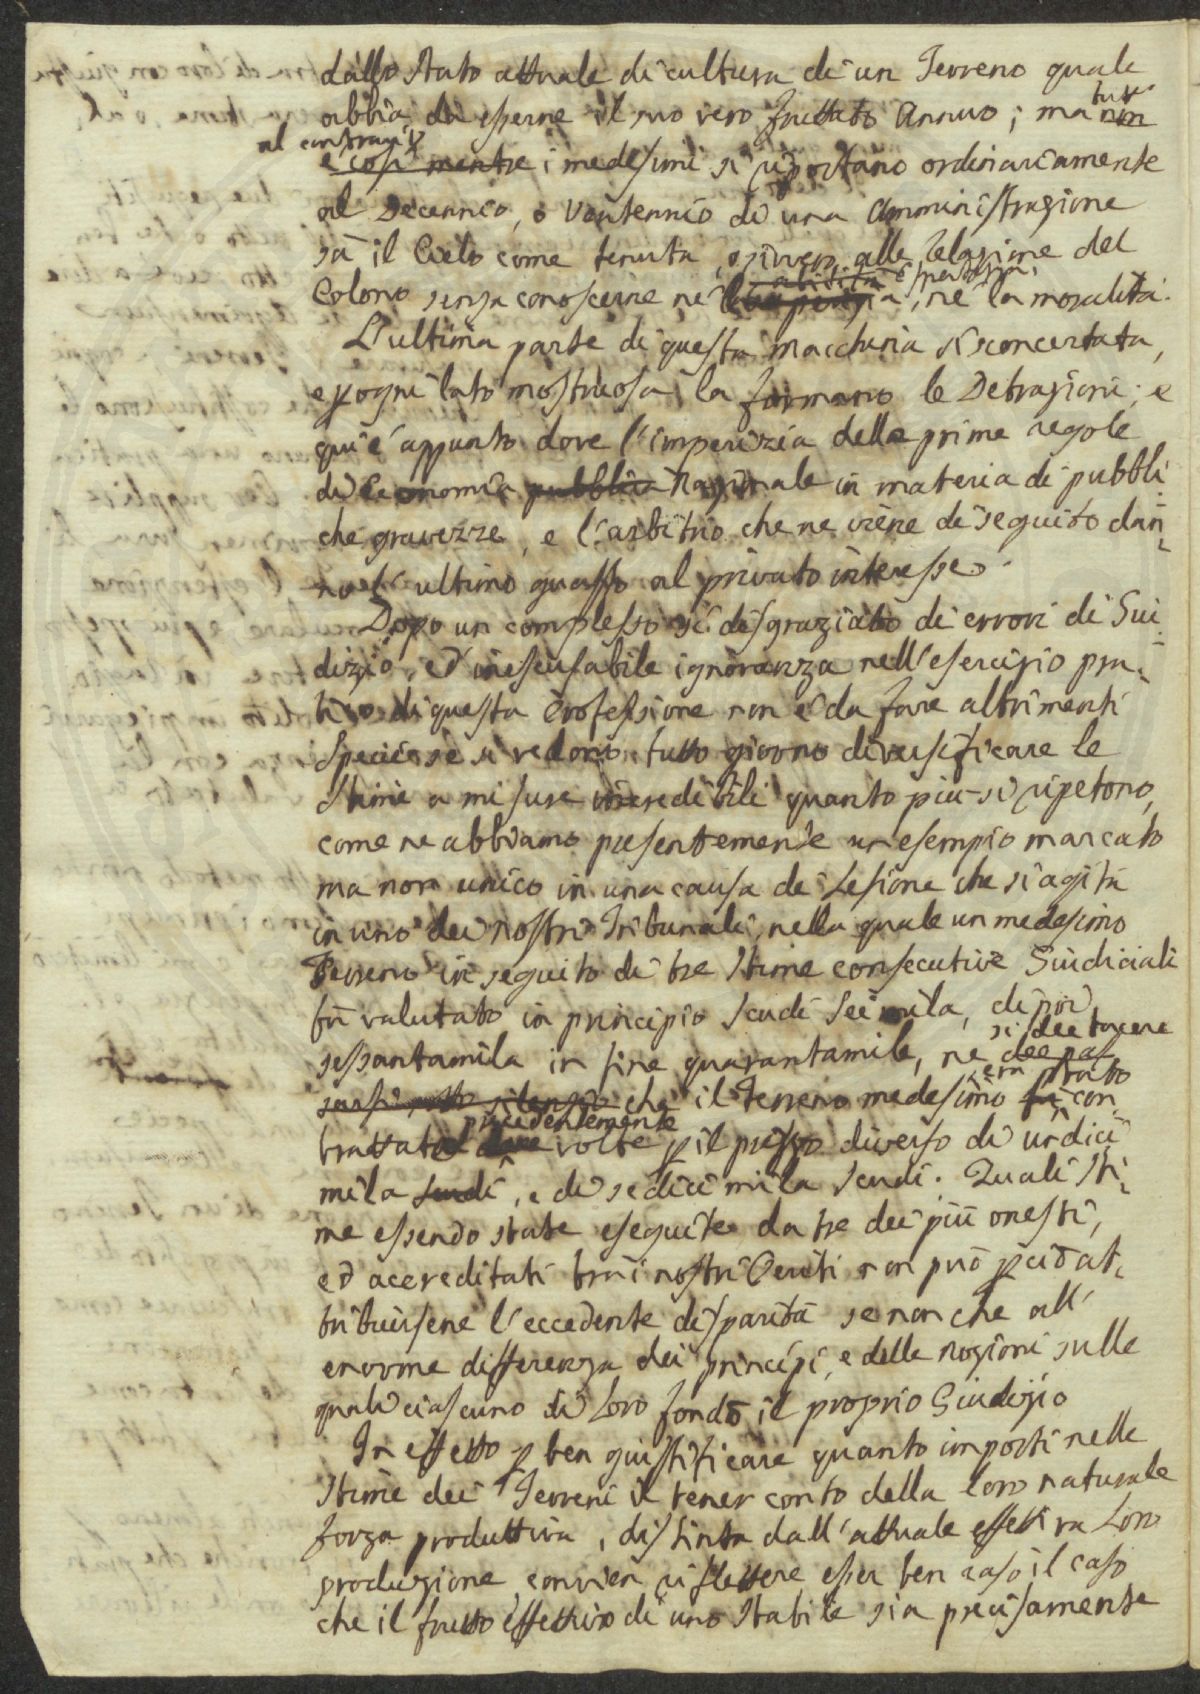 dallo stato attuale di cultura di un Terreno quale
abbia da esserne il suo vero fruttato annuo; ma non tutt'
al contrario
e così mentre i medesimi si riportano ordinariamente
al Decennio, o Ventennio di una Amministrazione
sà il Cielo come tenuta, ossivero alla relazione del
Colono senza conoscerne nè l'abilità, nè la moralità.
L'ultima parte di questa macchina sì sconcertata,
e p ogni lato mostruosa la formano le Detrazioni; e
qui è appunto dove l'imperizia delle prime regole
di Economia pubblica Nazionale in materia di pubbli
che gravezze, e l'arbitrio che ne viene di seguito dan
no l'ultimo guasto al privato interesse.
Dopo un complesso sì disgraziato di errori di Giu
dizio, ed inescusabile ignoranza nell'esercizio pra
tico di questa Professione non è da fare altrimenti
specie se si vedono tutto giorno diversificare le
Stime a misure incredibili quanto più si ripetono,
come ne abbiamo presentemente un esempio marcato
ma non unico in una causa di Lesione che si agita
in uno dei nostri Tribunali, nella quale un medesimo
Terreno in seguito di tre Stime consecutive Giudiciali
fù valutato in principio scudi seimila, di poi
sessantamila in fine quarantamila, ne si dee tacere
dee pas
sarsi sotto silenzio che il Terreno medesimo era stato con
trattato precedentemente due volte p il prezzo diverso di undici
mila scudi, e di sedici mila scudi. Quali Sti
me essendo state eseguite da tre dei più onesti,
ed accreditati trai nostri Periti non può pciò at
tribuirsene l'eccedente disparità se non che all'
enorme differenza dei principi, e delle nozioni sulle
quali ciascuno di Loro fondò il proprio Giudizio
In effetto p ben giustificare quanto importi nelle
Stime dei Terreni il tener conto della loro naturale
forza produttiva, distinta dall'attuale effettiva Loro
produzione convien riflettere esser ben raso il caso
che il frutto effettivo di uno Stabile sia precisamente